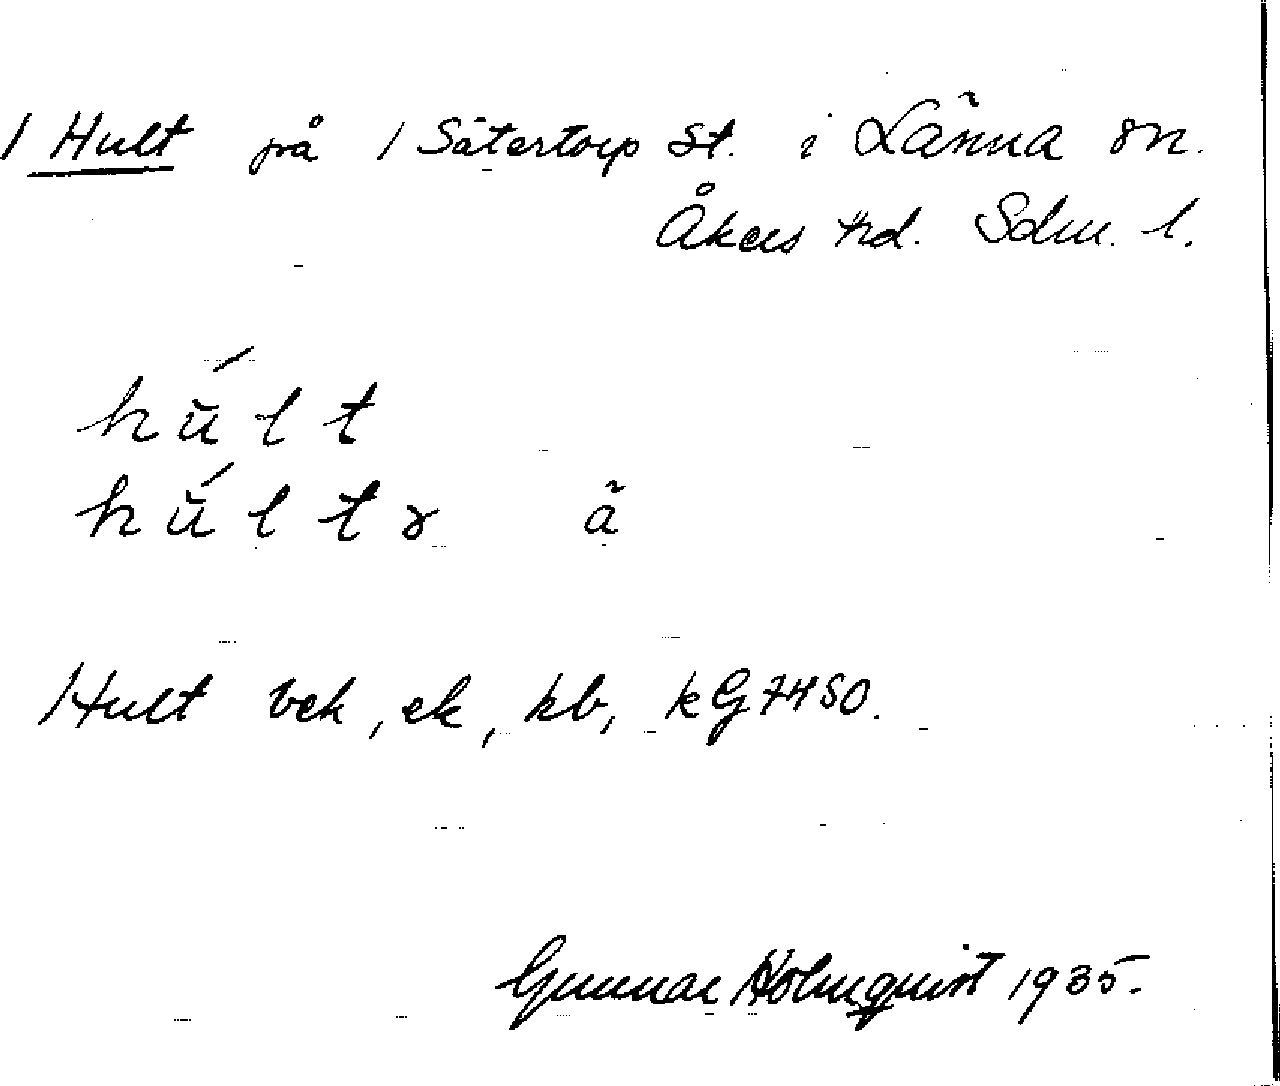 / Hult på / Sätertorp St. i Länna sn.
Åkers hd. Sdm. l.
hŭ́lt
hŭ́ltɤ ã
Hult bek, ek, kb, kG 7450.
Gunnar Holmquist 1935.